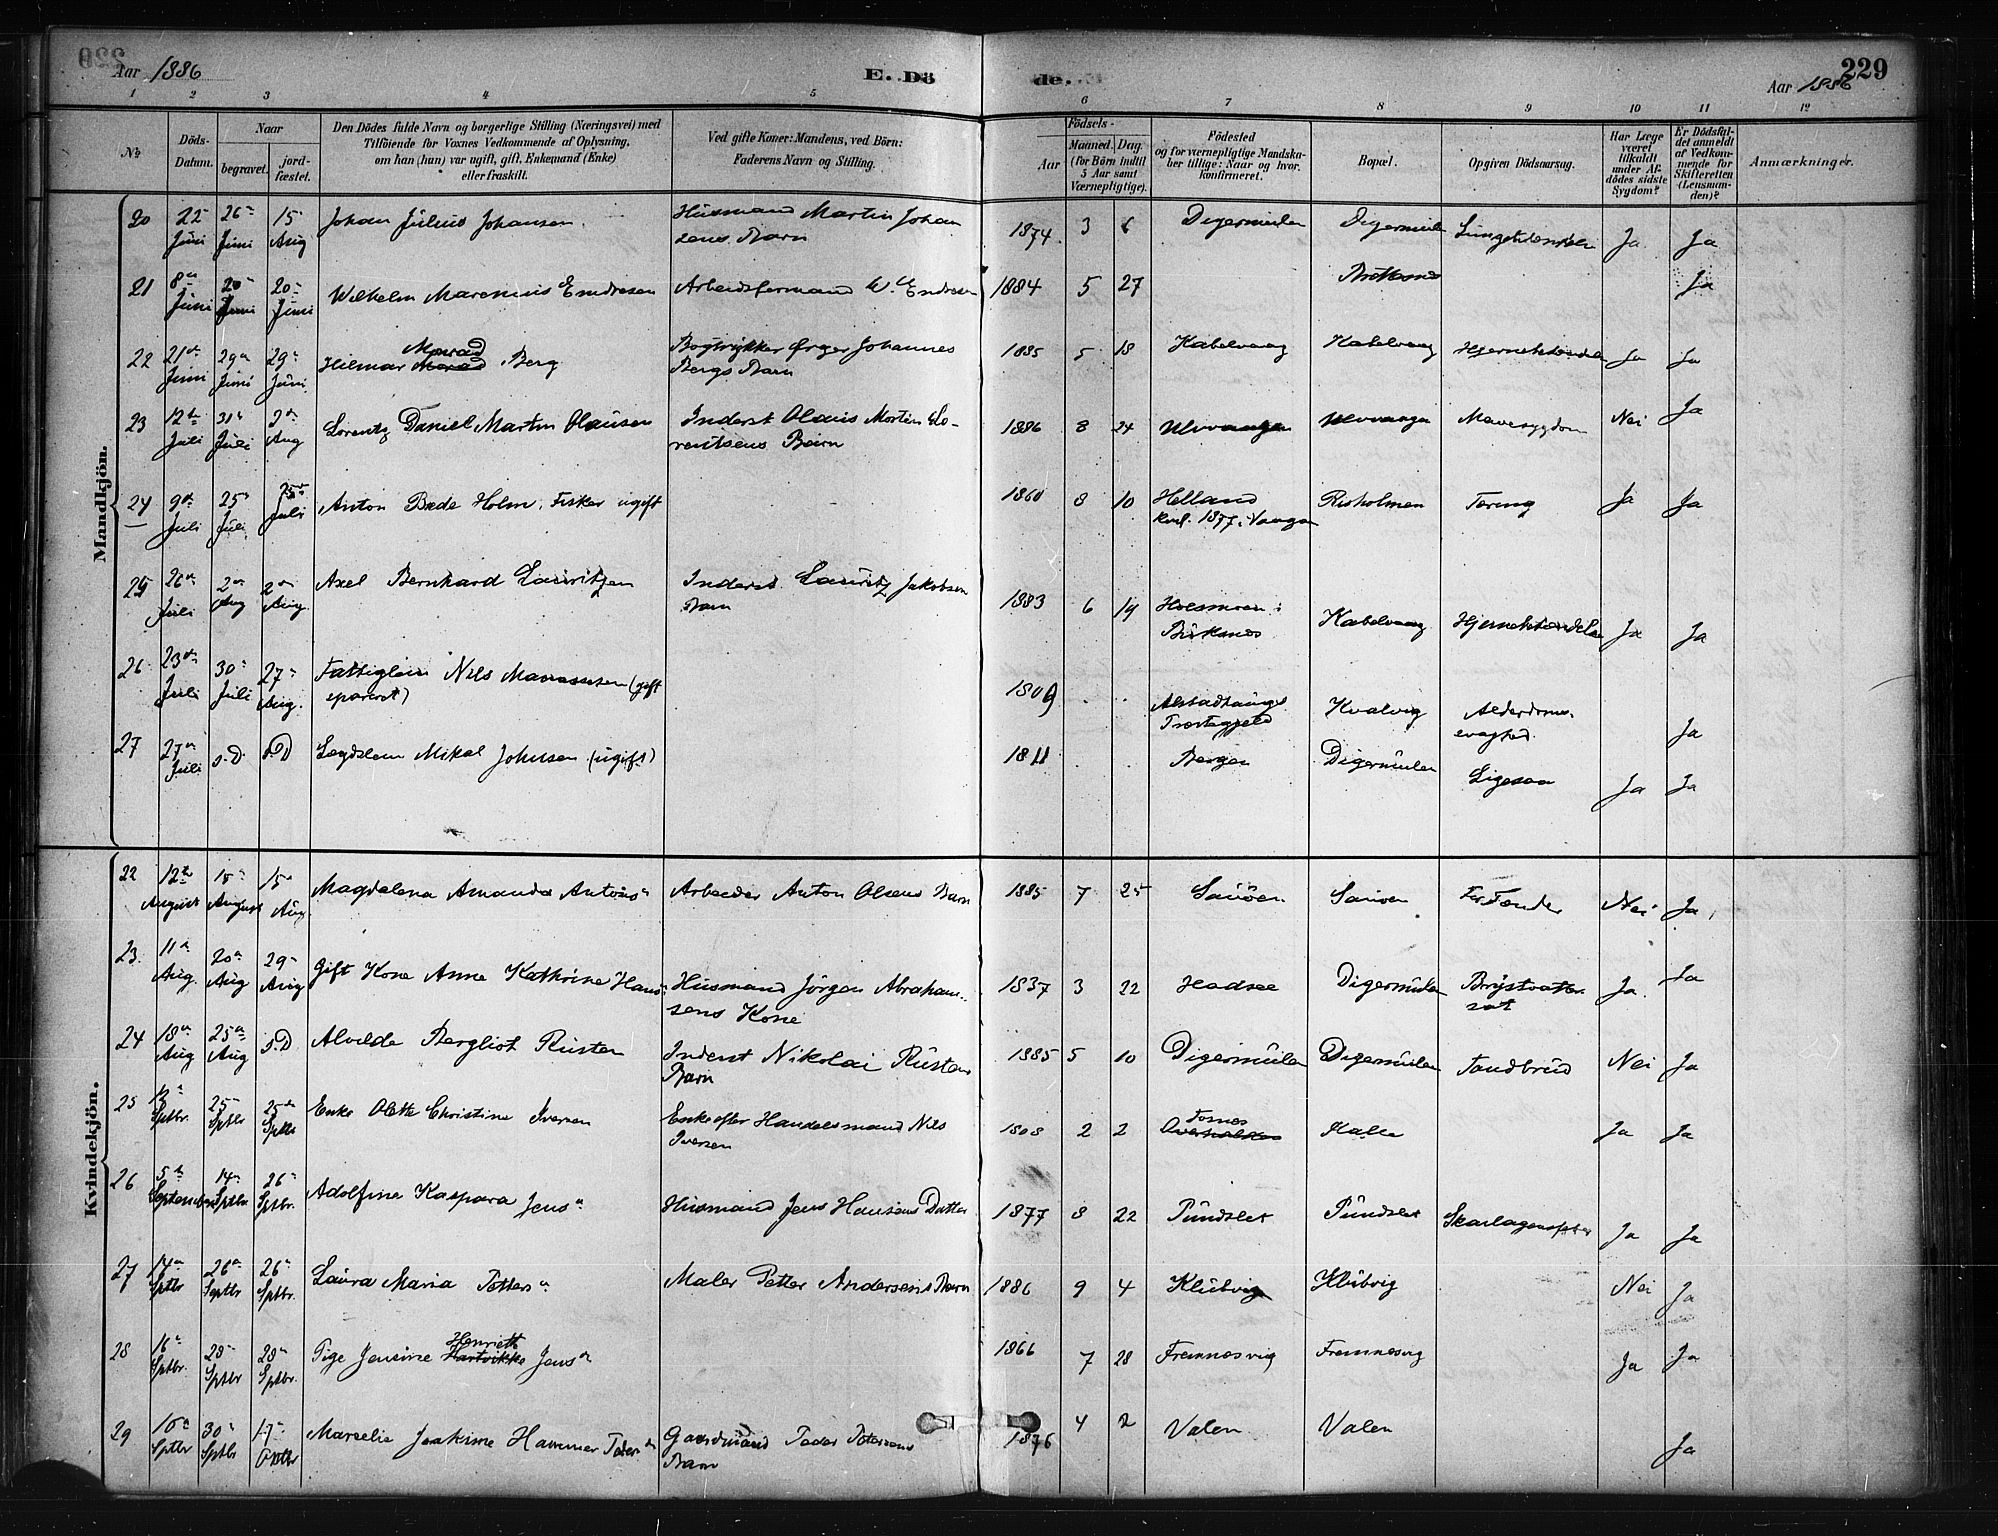 Aar 1886
E. Döde.
229
Aar 1886
1 2 3 4 5 6 7 8 9 10 11 12
No.
Döds-Datum.
Naar
begravet.
jordfæstet.
Den Dödes fulde Navn og borgerlige Stilling (Næringsvei) med
Tilföiende for Voxnes Vedkommende af Oplysning,
om han (hun) var ugift, gift, Enkemand (Enke)
eller fraskilt.
Ved gifte Koner: Mandens, ved Börn:
Faderens Navn og Stilling.
Födsels-
Aar
Maaned. Dag.
(for Börn indtil
5 Aar samt
Værnepligtige).
Födested
og for værnepligtige Mandska-
ber tillige: Naar og hvor
konfirmeret.
Bopæl.
Opgiven Dödsaarsag.
Har Læge
været
tilkaldt
under Af-
dödes sidste
Sygdom?
Er Dödsfal-
det anmeldt
af Vedkom-
mende for
Skifteretten
(Lensman-
den)?
Anmærkninger.
Mandkjön.
20 22 Juni 26 Juni 15 Aug Johan Julius Johansen Husmand Martin Johan
sens Barn 1874 3 6 Digermulen Digermulen Ja Ja
21 8de Juni 20 Juni 20 Juni Wilhelm Marenius Endresen Arbeidsformand W. Endresen 1884 5 27 Ja
22 21de Juni 29 Juni 29 Juni Hilmar Monrad Berg Bogtrykker Ørger Johannes
Bergs Barn 1885 5 18 Kabelvaag Kabelvaag Ja Ja
23 12te Juli 31 Juli 2den Aug Lorentz Daniel Martin Olausen Inderst Olaus Morten Lo-
rentsens Barn 1886 8 24 Ulvvaagen Ulvvaagen Mavesygdom Nei Ja
24 9de Juli 25 Juli 25 Juli Anton Bede Holm, Fisker ugift 1860 8 10 Helland
konf. 1877 i Vaagan Risholmen Tæring Ja Ja
25 26de Juli 2den Aug 2den Aug. Axel Bernhard Lauritzen Inderst Lauritz Jakobsen
Barn 1883 6 19 Holsmoen i
Birknes Kabelvaag Ja Ja
26 23de Juli 30 Juli 27 Aug. Fattiglem Nils Manassesen (gift
separert) 1809 Alstadhaugs
Præstegjeld Kvalvig Alderdoms-
svaghed. Ja
27 27de Juli s.D. s.D Lægdslem Mikal Johnsen (ugift) 1811 Bergen Digermulen Ligesaa Ja Ja
Kvindekjön.
22 12te August 15 August 15 Aug. Magdalena Amanda Antons. Arbeider Anton Olsens Barn 1885 7 25 Sauöen Sauöen Nei Ja
23. 11te Aug. 20 Aug 29 Aug Gift Kone Anne Kathrine Hans. Husmand Jörgen Abraham-
sens Kone 1837 3 22 Hadsel Digermulen Brystvatter-
sot Ja Ja
24 18de Aug 25 Aug s.D Alvilde Bergliot Rüsten Inderst Nikolai Rüstens
Barn 1885 5 10 Digermulen Digermulen Tandbrud Nei Ja
25 Sptbr. 25 Sptbr 25de Sptbr Enke Olette Christine Iversen Enke efter Handelsmand Nils
Iversen 1808 2 2 Kalle Ja Ja
26 5te September 14 Sptbr 26 Sptbr. Adolfine Kaspara Jens. Husmand Jens Hansens Datter 1877 8 22 Pundslet Pundslet Skarlagensfeber Ja Ja
27 14de Sptbr 26 Septbr 26 Sptbr. Laura Maria Petters. Maler Petter Andersens Barn 1886 9 4 Klubvig Klubvig Nei Ja
28 16 Sptbr. 28 Sptbr 28 Sptbr Pige Jensine Henriette Jens. 1866 7 28 Fremnesvig Fremnesvig Ja Ja
29 16 Sptbr 30 Sptbr 17 Octbr Marselie Joakime Hammer Peder. Gaardmand Peder Petersens
Barn 1876 4 2 Valen Valen Ja